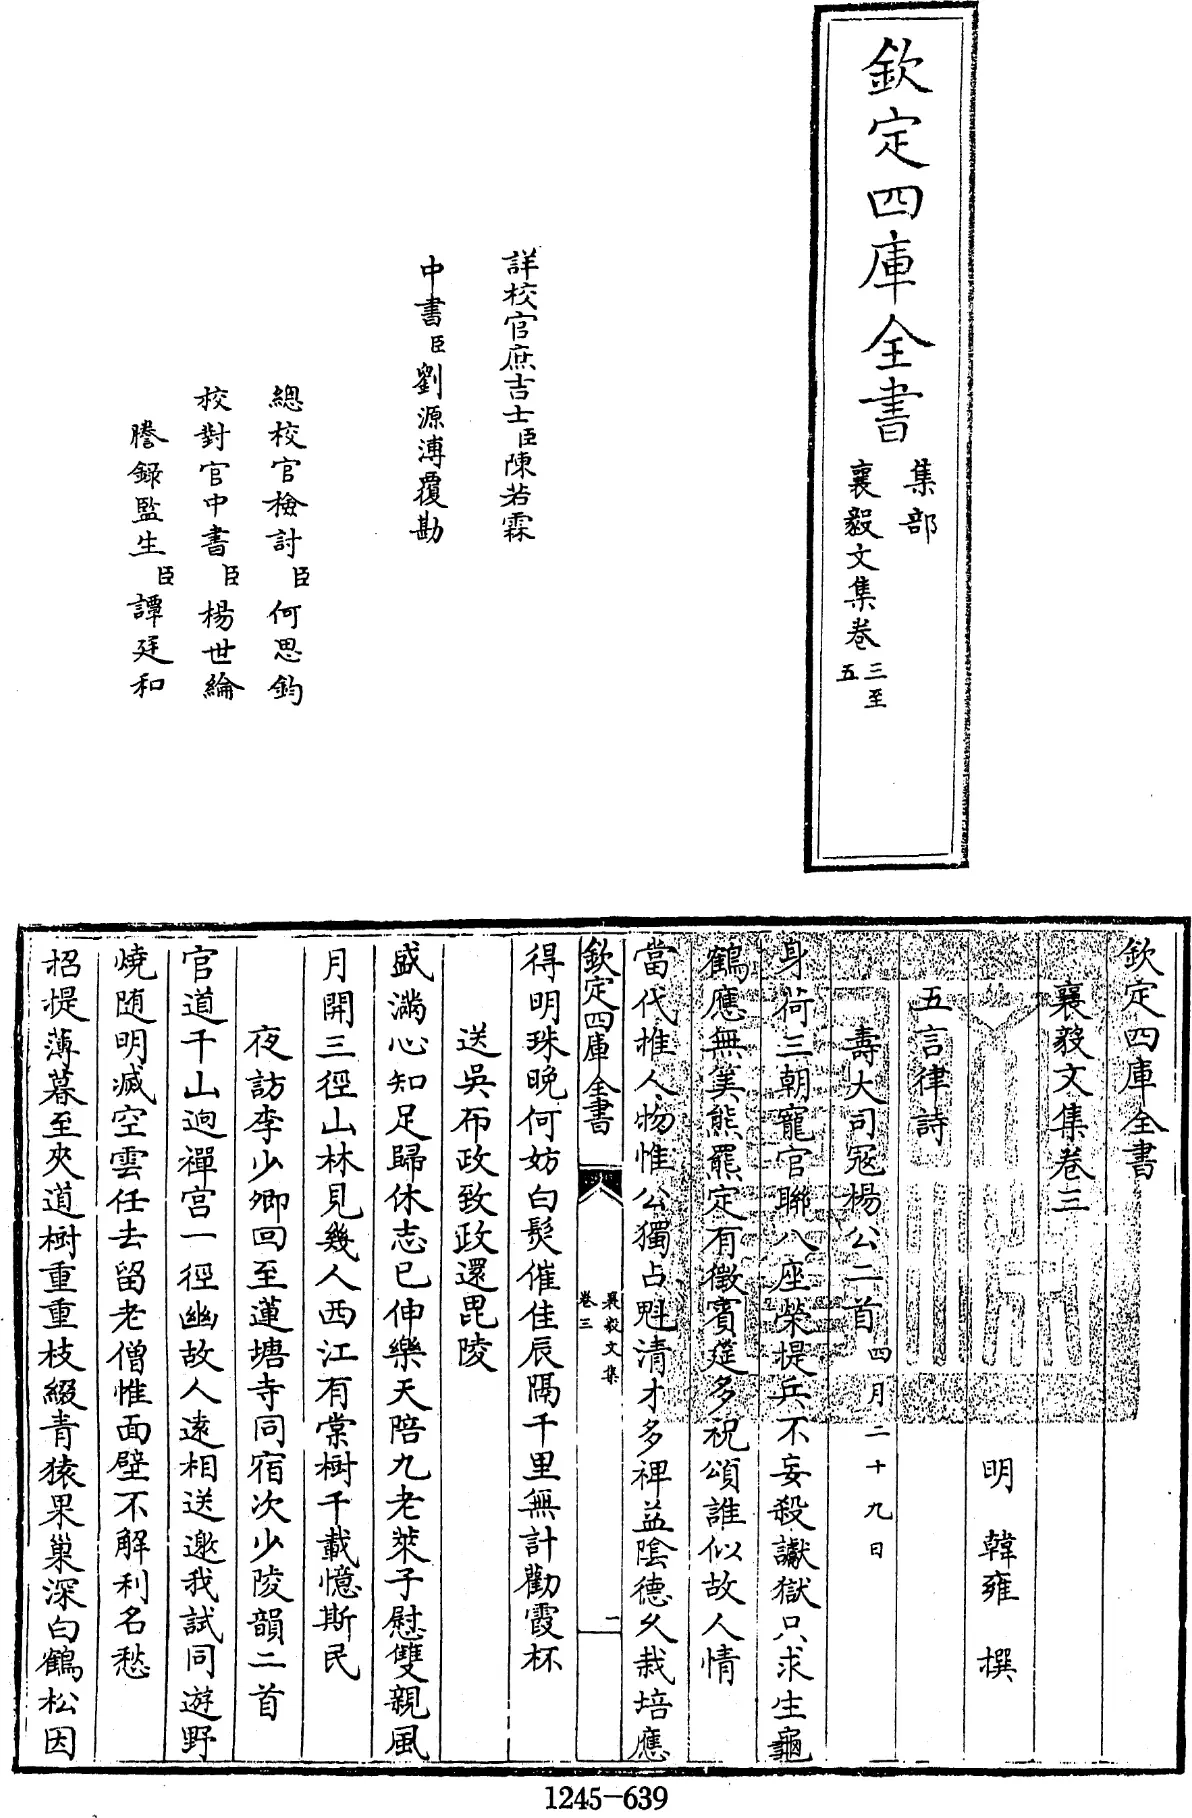 欽定四庫全書
集部
襄毅文集卷三至五
詳校官庶吉士臣陳若霖
中書臣劉源溥覆勘
總校官檢討臣何思鈞
校對官中書臣楊世綸
謄錄監生臣譚廷和
欽定四庫全書
襄毅文集卷三
明 韓雍 撰
五言律詩
壽大司寇楊公二首四月二十九日
身荷三朝寵官聯八座榮提兵不妄殺讞獄只求生龜
鶴應無筭熊羆定有徵賓筵多祝頌誰似故人情
當代推人物惟公獨占魁清才多裨益陰德久栽培應
欽定四庫全書
襄毅文集
卷三
一
得明珠晚何妨白髮催佳辰隔千里無計勸霞杯
送吳布政致政還毘陵
盛滿心知足歸休志已伸樂天陪九老萊子慰雙親風
月開三徑山林見幾人西江有棠樹千載憶斯民
夜訪李少卿回至蓮塘寺同宿次少陵韻二首
官道千山逈禪宮一徑幽故人遠相送邀我試同遊野
燒随明滅空雲任去留老僧惟面壁不解利名愁
招提薄暮至夾道樹重重枝綴青猿果巢深白鶴松因
1245-639